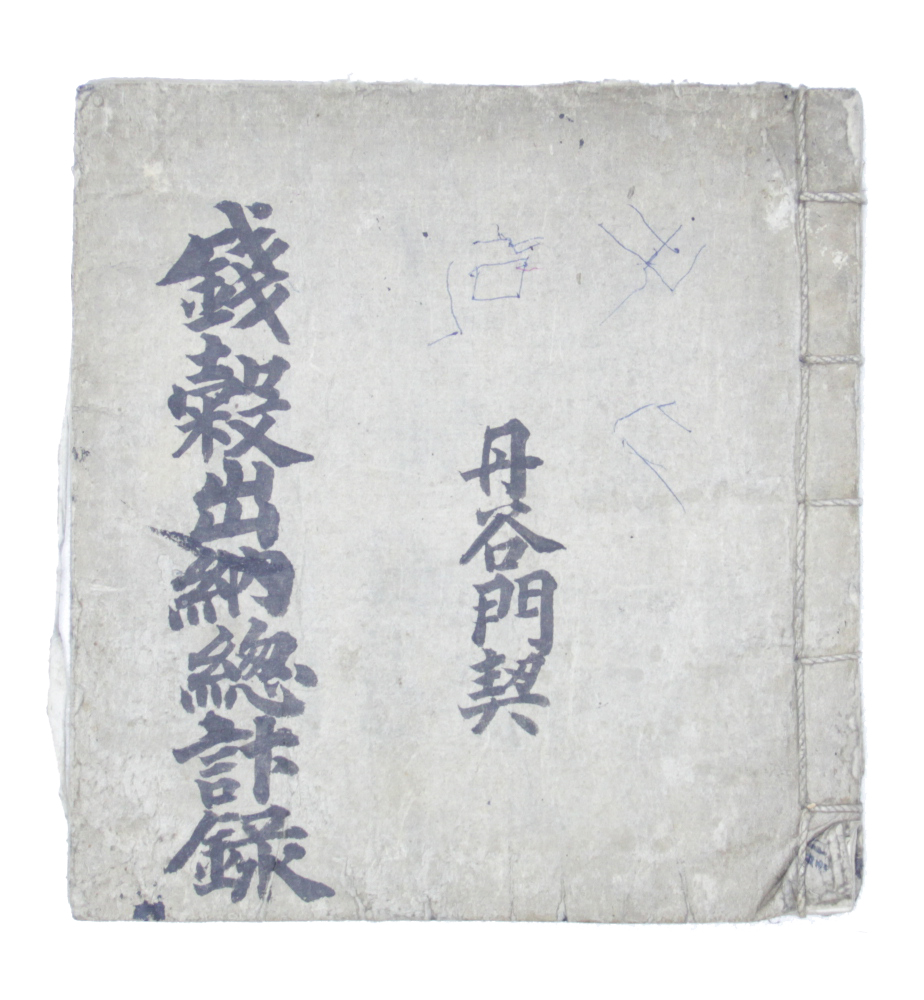 丹谷門契
錢穀出納總計錄